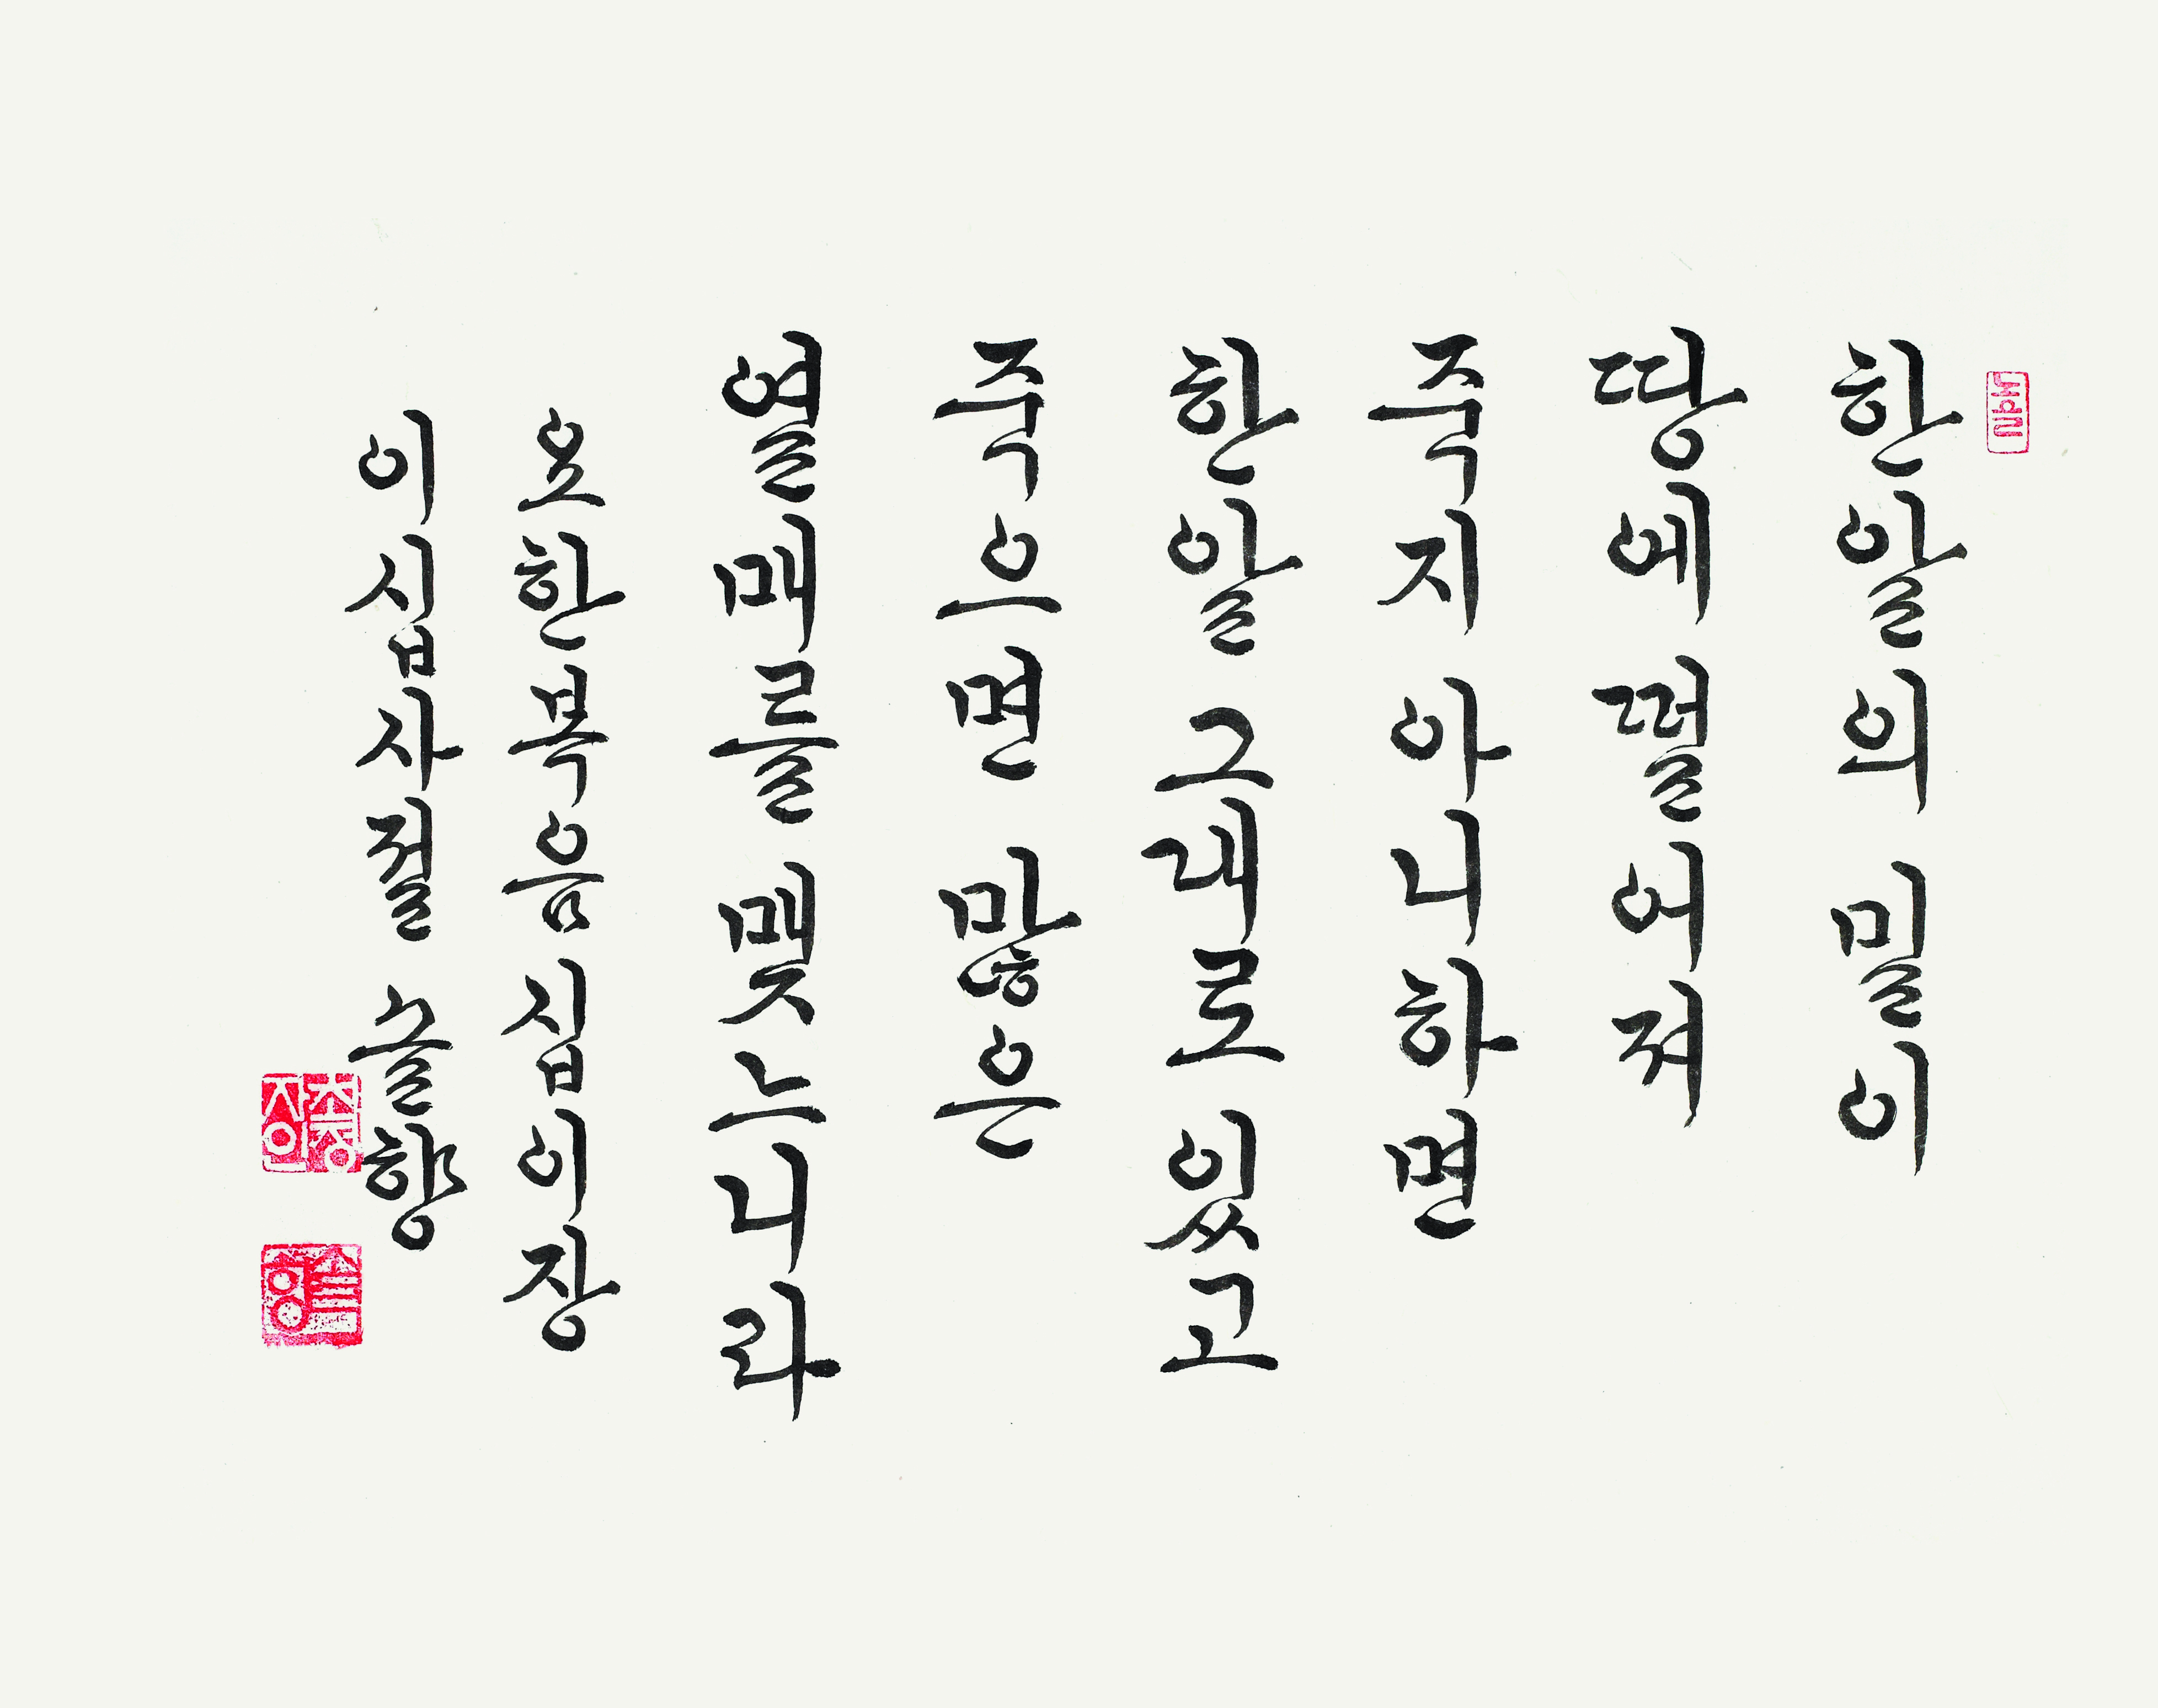 한알의 밀이
땅에 떨어져
죽지 아니하면
한알 그대로 있고
죽으면 많은
열매를 맺느니라
요한복음 십이장
이십사절 솔향
솔향